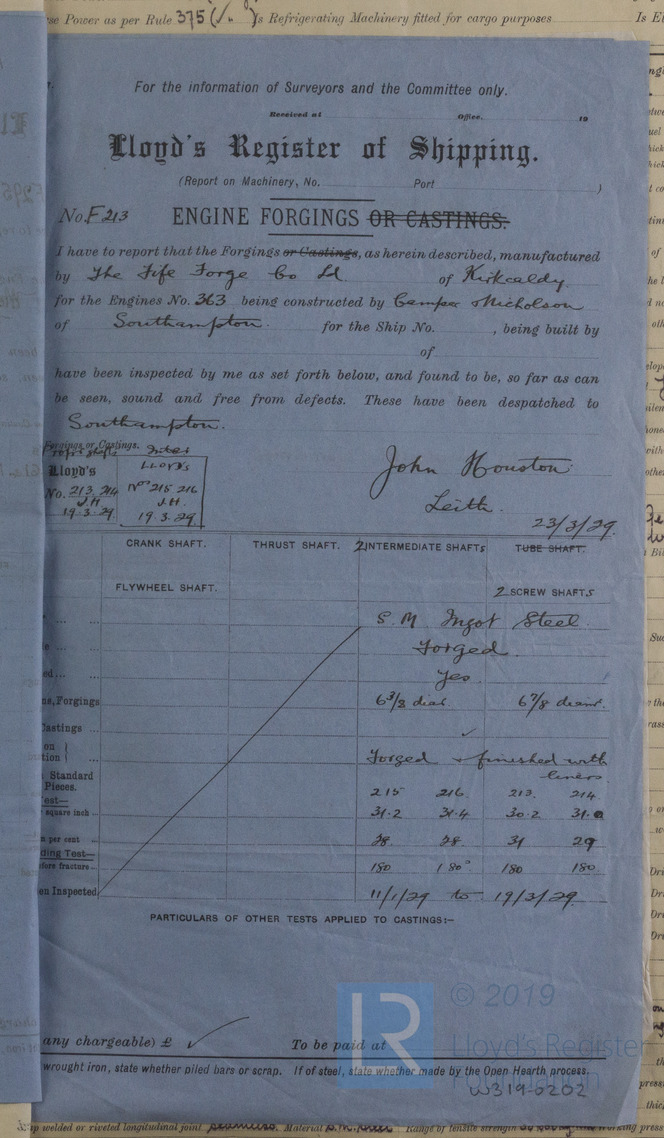 se Power as per Rule 375 Is Refrigerating Machinery fitted for cargo purposes Is El
For the information of Surveyors and the Committee only.
Received at Office. 19
Lloyd's Register of Shipping.
(Report on Machinery, No. Port )
No. F 213 ENGINE FORGINGS OR CASTINGS.
I have to report that the Forgings or Castings, as herein described, manufactured
by The Fife Forge Co Ld of Kirkcaldy
for the Engines No. 363 being constructed by Camper Nicholson
of Southampton. for the Ship No. , being built by
of
have been inspected by me as set forth below, and found to be, so far as can
be seen, sound and free from defects. These have been despatched to
Southampton.
Forgings or Castings.
Lloyd's LLOYD'S
No. 213. 214 Nos 215 216
J.H. J.H.
19.3.29 19.3.29
John Houston
Leith.
23/3/29.
CRANK SHAFT. THRUST SHAFT. 2 INTERMEDIATE SHAFTS TUBE SHAFT.
FLYWHEEL SHAFT. 2 SCREW SHAFTS
S. M Ingot Steel
Forged
ed Yes
ns, Forgings 6 3/8 diar. 6 7/8 diamr.
Castings ✓
on
tion Forged & finished with
liners.
Standard
Pieces. 215 216. 213. 214.
est—
square inch 31.2 31.4 30.2 31.0
n per cent 28. 28. 31 29
ding Test—
fore fracture 180 180° 180 180.
en Inspected 11/1/29 to 19/3/29.
PARTICULARS OF OTHER TESTS APPLIED TO CASTINGS:—
© 2019
Lloyd's Register
Foundation
any chargeable) £ ✓ To be paid at
wrought iron, state whether piled bars or scrap. If of steel, state whether made by the Open Hearth process.
W319-0202
welded or riveted longitudinal joint seamless. Material S.M. Steel Range of tensile strength working press